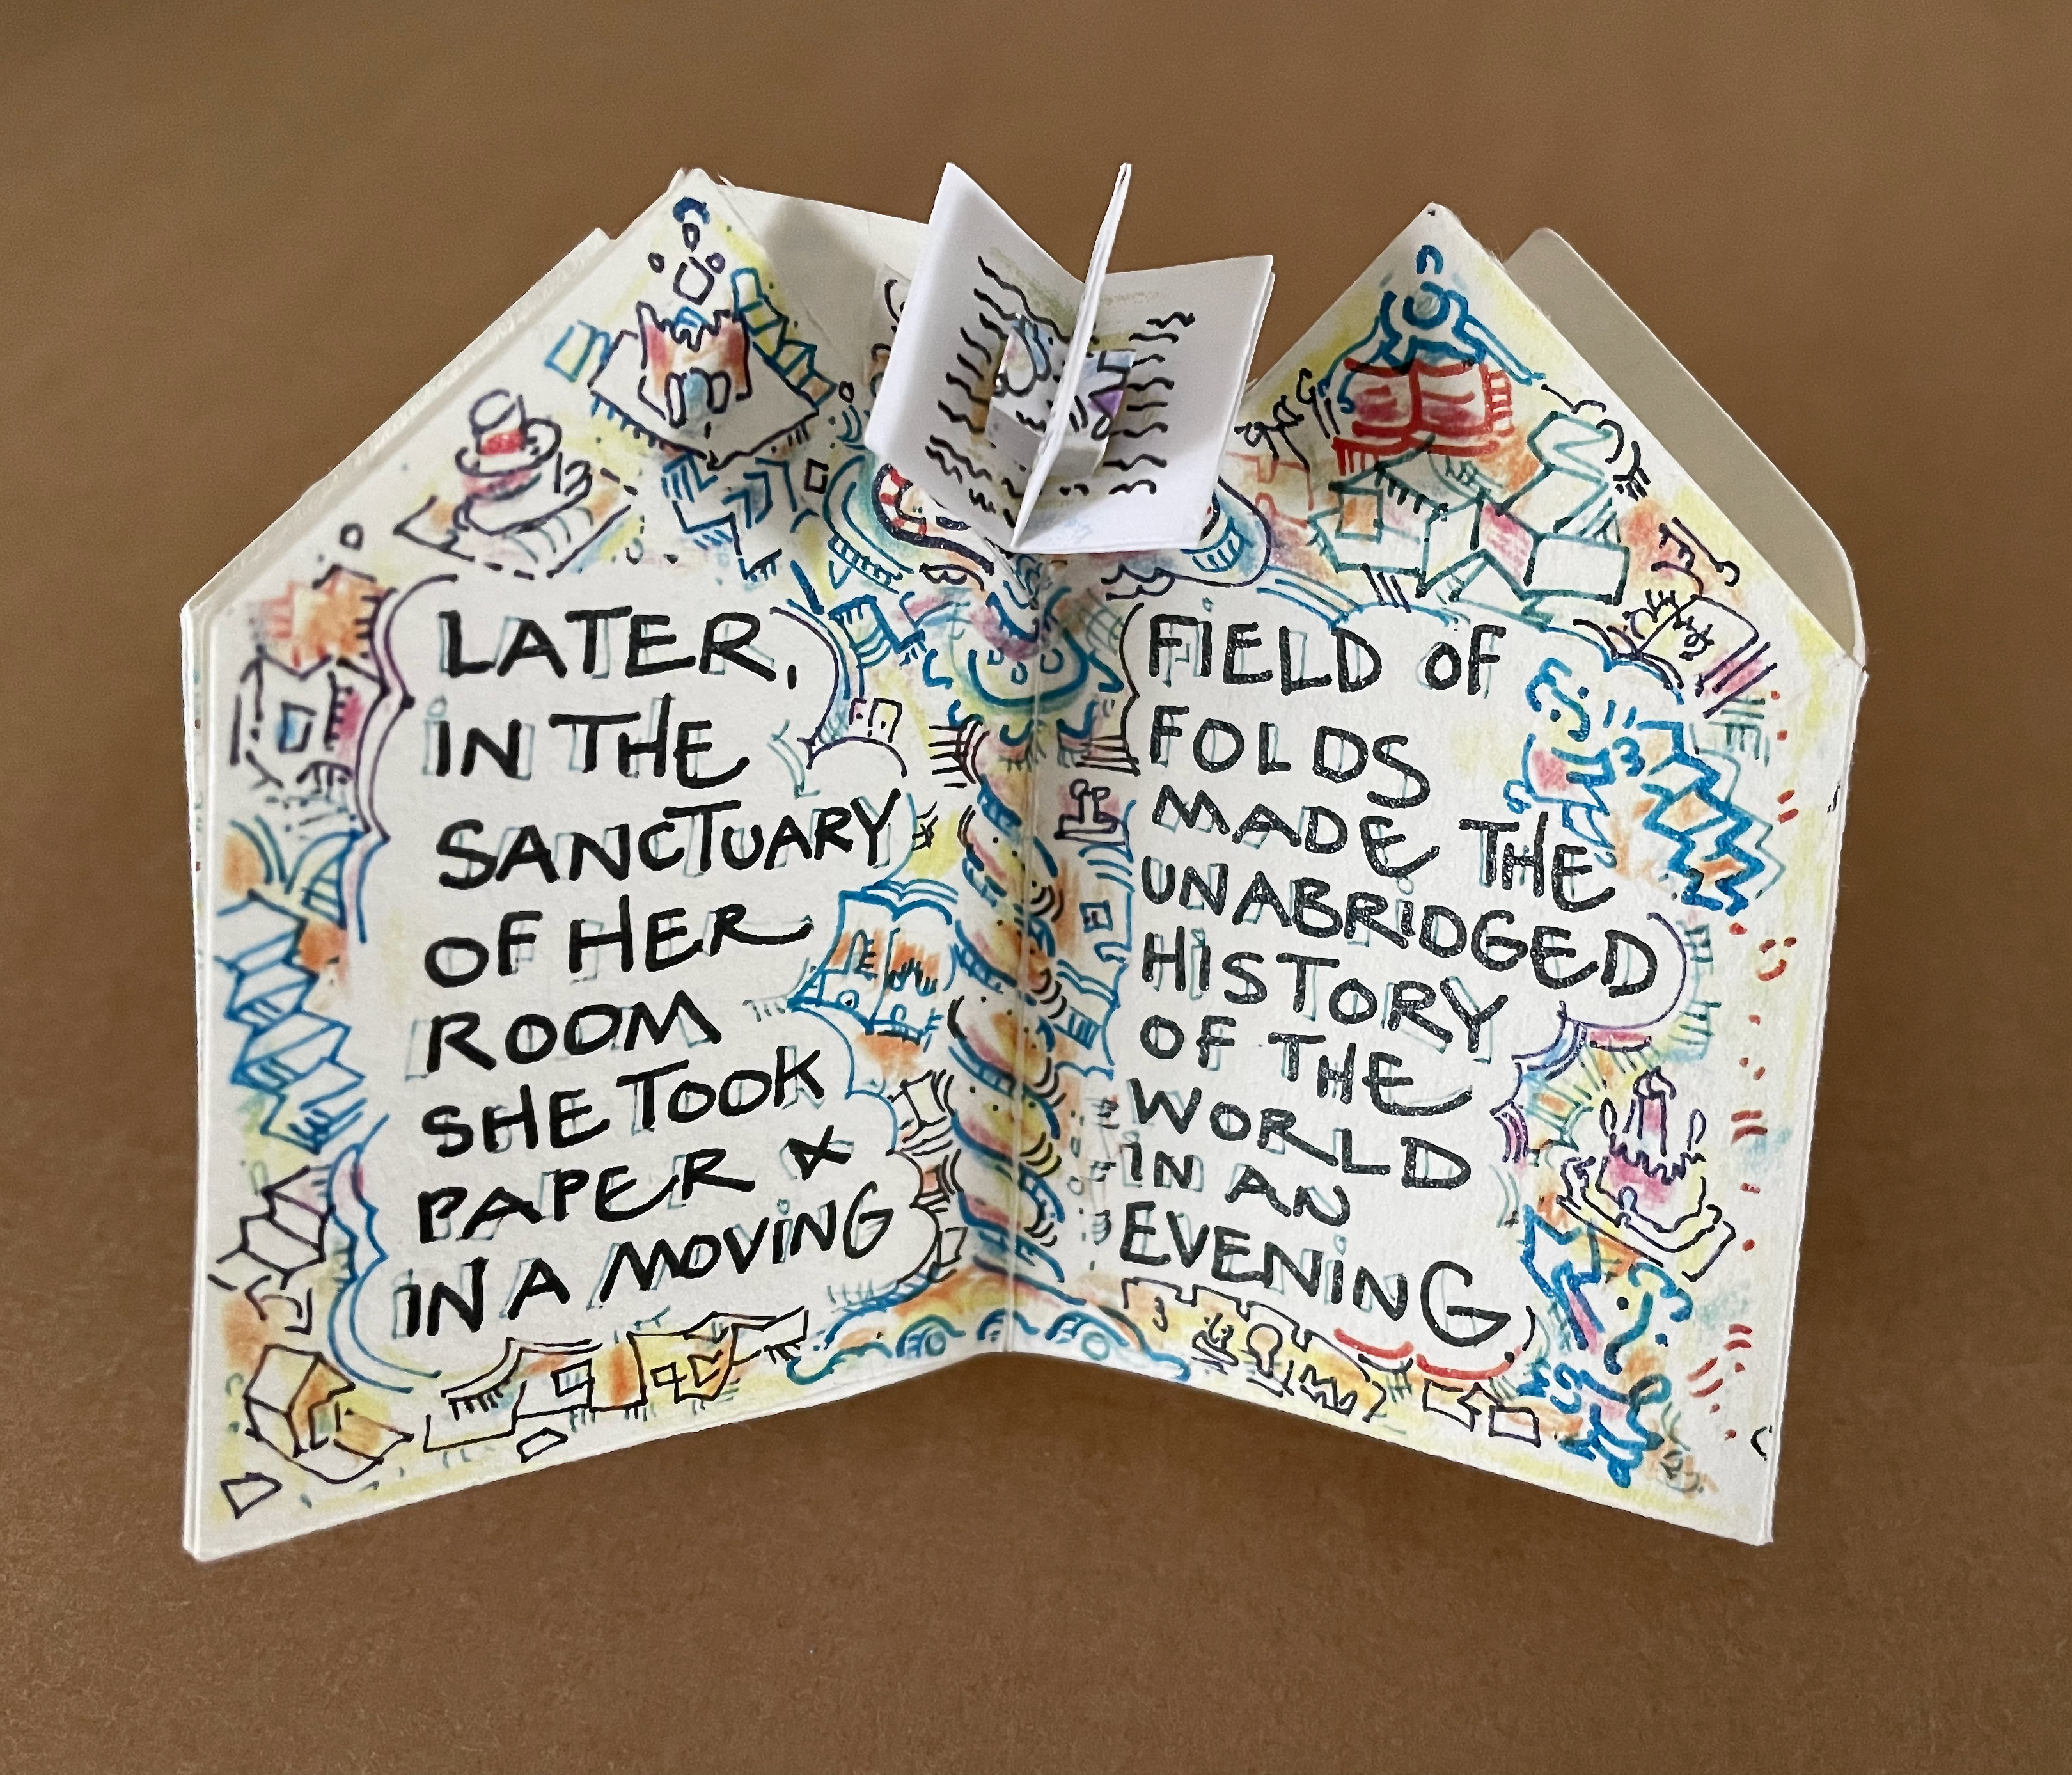 LATER,
IN THE
SANCTUARY
OF HER
ROOM
SHE TOOK
PAPER &
IN A MOVING
FIELD OF
FOLDS
MADE THE
UNABRIDGED
HISTORY
OF THE
WORLD
IN AN
EVENING.